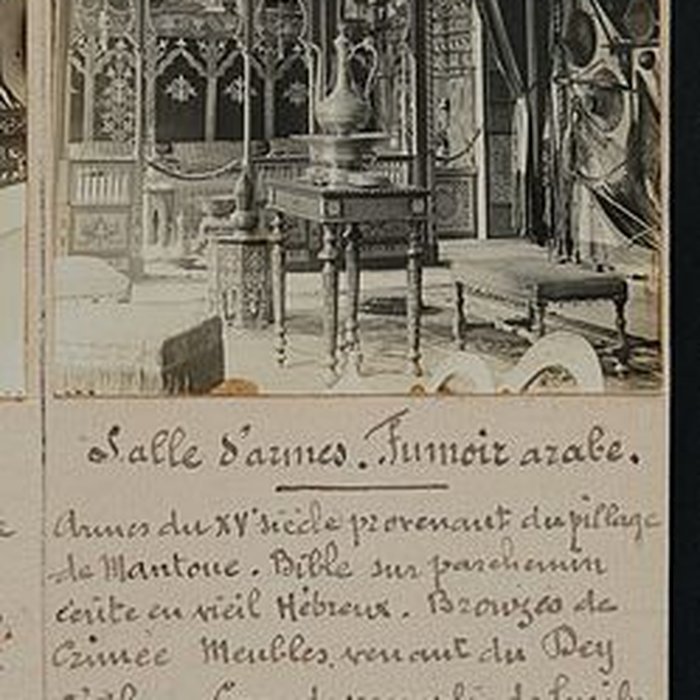 Salle d'armes. Fumoir arabe.
Armes du XVe siècle provenant du pillage
de Mantoue. Bible sur parchemin
écrite en vieil Hébreux. Bronzes de
Crimée Meubles, venant du Dey